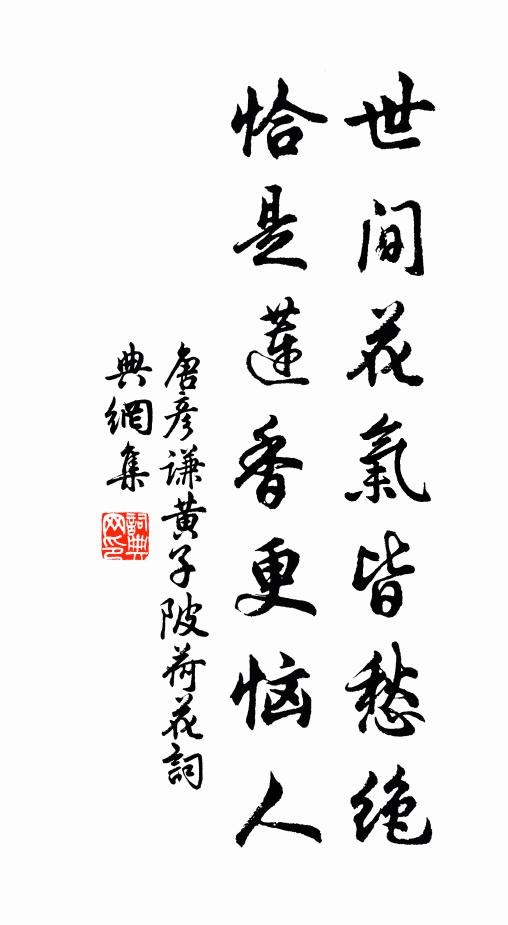 世间花氣皆愁绝
恰是蓮香更恼人
唐彦谦黄子陂荷花詞
典網集
詞典
网印